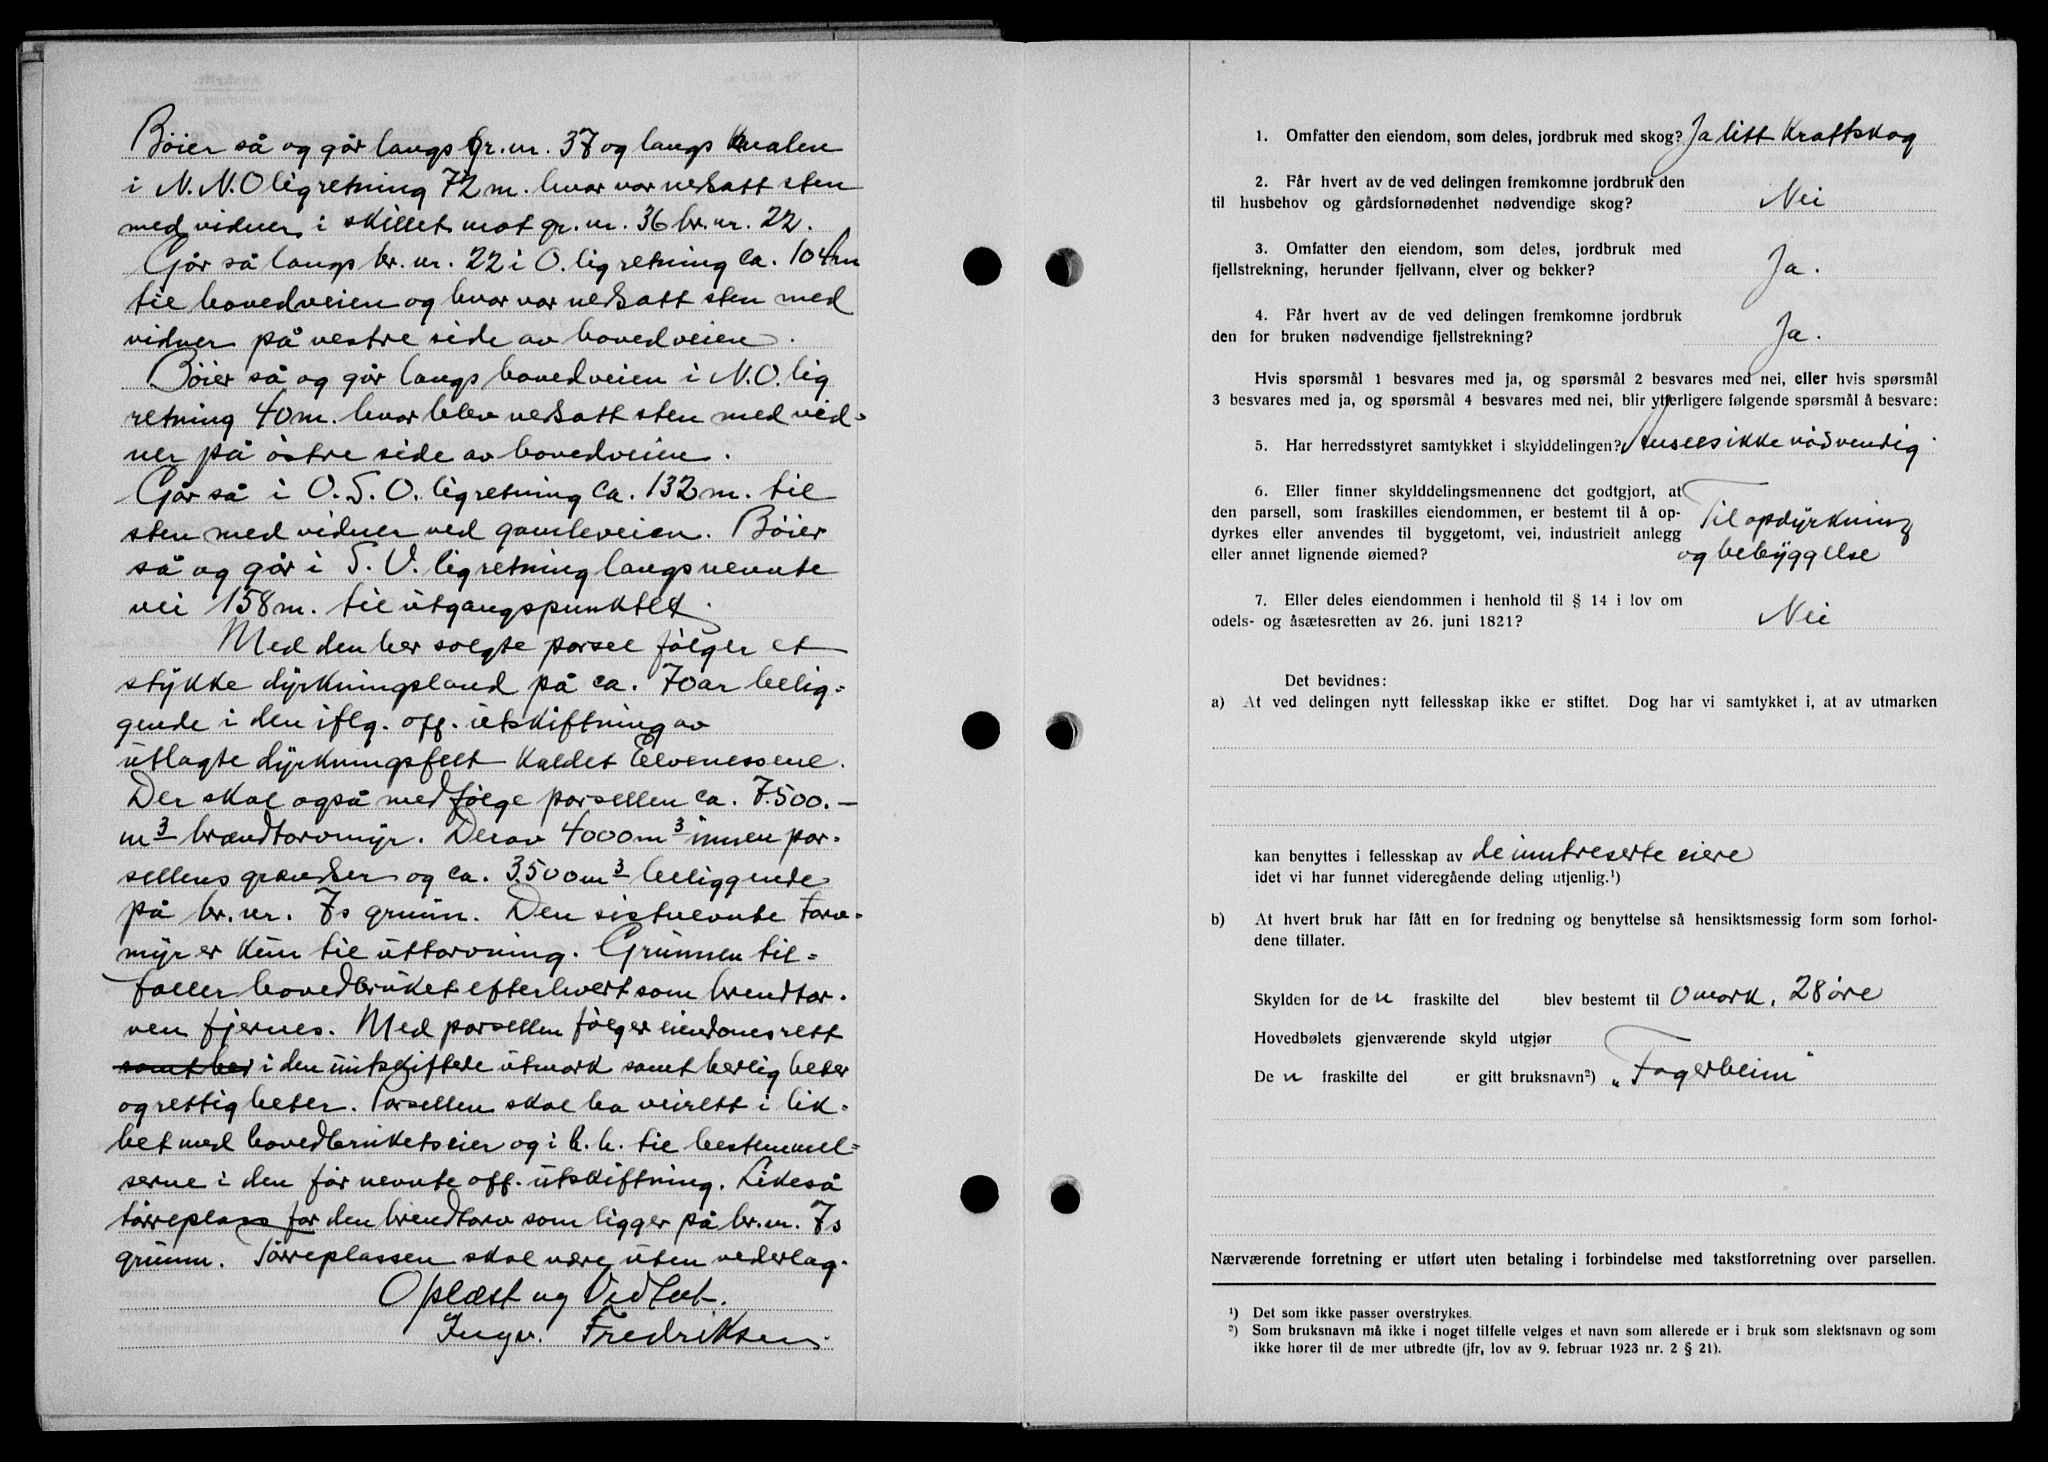 Böier så og går langs gr. nr. 37 og langs Kvalen
i N. N. O lig retning 72 m. hvor var nedsatt sten
med vidner i skillet mot gr. nr. 36 br. nr. 22.
Går så langs br. nr. 22 i O. lig retning ca. 104 m
til hovedveien og hvor var nedsatt sten med
vidner på vestre side av hovedveien.
Böier så og går langs hovedveien i N. O. lig
retning 40 m. hvor blev nedsatt sten med vid-
ner på östre side av hovedveien.
Går så i O. S. O. lig retning ca. 132 m. til
sten med vidner ved gamleveien. Böier
så og går i S. V. lig retning langs nevnte
vei 158 m. til utgangspunktet.
Med den her solgte parsel fölger et
stykke dyrkningsland på ca. 70 ar belig-
gende i den iflg. off. utskiftning av
utlagte dyrkningsfelt kaldet Elvenessene.
Der skal også medfölge parsellen ca. 7.500.-
m³ brændtorvmyr. Derav 4000 m³ innen par-
sellens grændser og ca. 3.500 m³ beliggende
på br. nr. 7s grunn. Den sistnevnte torv-
myr er kun til uttorvning. Grunnen til-
faller hovedbruket efterhvert som brendtor-
ven fjernes. Med parsellen fölger eiendomsrett
samt her i den uutskiftede utmark samt herligheter
og rettigheter. Parsellen skal ha veirett i lik-
het med hovedbrukets eier og i h. h. til bestemmel-
serne i den för nevnte off. utskiftning. Likeså
törreplass for den brendtorv som ligger på br. nr. 7s
grunn. Törreplassen skal være uten vederlag.
Oplæst og Vedtat.
Ingv. Fredriksen.
1. Omfatter den eiendom, som deles, jordbruk med skog? Ja litt Krattskog
2. Får hvert av de ved delingen fremkomne jordbruk den
til husbehov og gårdsfornødenhet nødvendige skog? Nei
3. Omfatter den eiendom, som deles, jordbruk med
fjellstrekning, herunder fjellvann, elver og bekker? Ja.
4. Får hvert av de ved delingen fremkomne jordbruk
den for bruken nødvendige fjellstrekning? Ja.
Hvis spørsmål 1 besvares med ja, og spørsmål 2 besvares med nei, eller hvis spørsmål
3 besvares med ja, og spørsmål 4 besvares med nei, blir ytterligere følgende spørsmål å besvare:
5. Har herredsstyret samtykket i skylddelingen? Ansees ikke nödvendig
6. Eller finner skylddelingsmennene det godtgjort, at
den parsell, som fraskilles eiendommen, er bestemt til å op-
dyrkes eller anvendes til byggetomt, vei, industrielt anlegg
eller annet lignende øiemed? Til opdyrkning
og bebyggelse
7. Eller deles eiendommen i henhold til § 14 i lov om
odels- og åsætesretten av 26. juni 1821? Nei
Det bevidnes:
a) At ved delingen nytt fellesskap ikke er stiftet. Dog har vi samtykket i, at av utmarken
kan benyttes i fellesskap av de inntreserte eiere
idet vi har funnet videregående deling utjenlig.¹)
b) At hvert bruk har fått en for fredning og benyttelse så hensiktsmessig form som forhol-
dene tillater.
Skylden for den fraskilte del blev bestemt til 0 mark, 28 öre
Hovedbølets gjenværende skyld utgjør
Den fraskilte del er gitt bruksnavn²) „Fagerheim"
Nærværende forretning er utført uten betaling i forbindelse med takstforretning over parsellen.
¹) Det som ikke passer overstrykes.
²) Som bruksnavn må ikke i noget tilfelle velges et navn som allerede er i bruk som slektsnavn og som
ikke hører til de mer utbredte (jfr. lov av 9. februar 1923 nr. 2 § 21).